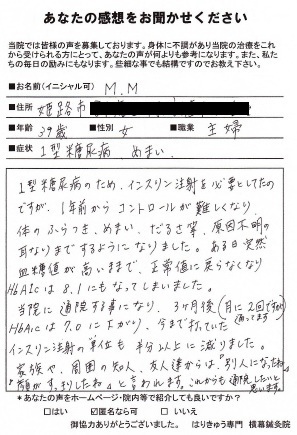 あなたの感想をお聞かせください
当院では皆様の声を募集しております。身体に不調があり当院の治療をこれ
から受けられる方にとって、あなたの声が何よりも参考になります。また、私た
ちの毎日の励みにもなります。些細な事でも結構ですのでお教え下さい。
■お名前(イニシャル可) M.M
■住所 姫路市
■年齢 39歳 ■性別 女 ■職業 主婦
■症状 1型糖尿病 めまい
1型糖尿病のため、インスリン注射を必要としてたの
ですが、1年前からコントロールが難しくなり、
体のふらつき、めまい、だるさ等、原因不明の
耳なりまでするようになりました。ある日突然
血糖値が高いままで、正常値に戻らなくなり
HbA1cは8.1にもなってしまいました。
当院に通院する事になり、3ヶ月後(月に2回ですが
通ってます)
HbA1cは7.0に下がり、今まで打っていた
インスリン注射の単位も半分以上に減りました。
家族や、周囲の知人、友人達からは、「別人になったね」
「顔がすっきりしたね」と言われます。これからも通院したいと
思います。
*あなたの声をホームページ・院内等で紹介しても良いですか?
□はい ☑匿名なら可 □いいえ
御協力ありがとうございました。 はりきゅう専門 横幕鍼灸院